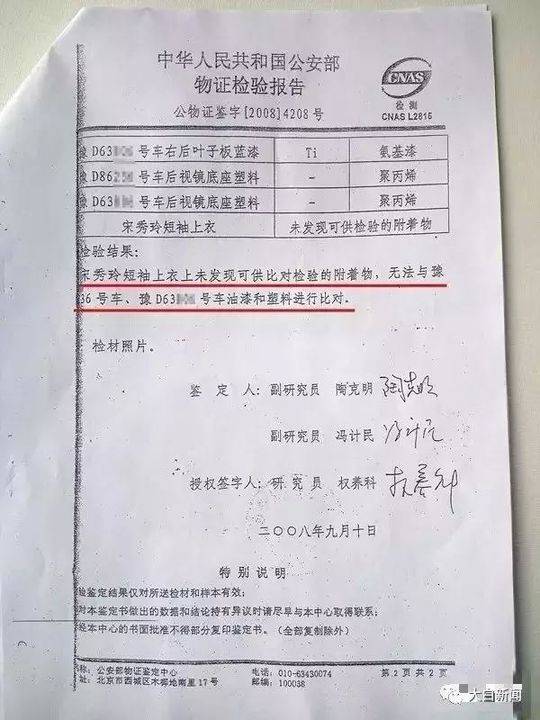 中华人民共和国公安部
物证检验报告
CNAS
检测
CNAS L2815
公物证鉴字[2008]4208号
豫D63 号车右后叶子板蓝漆 Ti 氨基漆
豫D86 号车后视镜底座塑料 - 聚丙烯
豫D63 号车后视镜底座塑料 - 聚丙烯
宋秀玲短袖上衣 未发现可供检验的附着物
检验结果:
宋秀玲短袖上衣上未发现可供比对检验的附着物,无法与豫
36号车、豫D63 号车油漆和塑料进行比对。
检材照片。
鉴定人:副研究员 陶克明 陶克明
副研究员 冯计民 冯计民
授权签字人:研究员 权养科 权养科
二〇〇八年九月十日
特别说明
检鉴定结果仅对所送检材和样本有效;
对本鉴定书做出的数据和结论持有异议时请尽早与本中心取得联系;
经本中心的书面批准不得部分复印鉴定书。(全部复制除外)
称:公安部物证鉴定中心 电话:010-63430074 第2页共2页
址:北京市西城区木樨地南里17号 邮编:100038
大白新闻